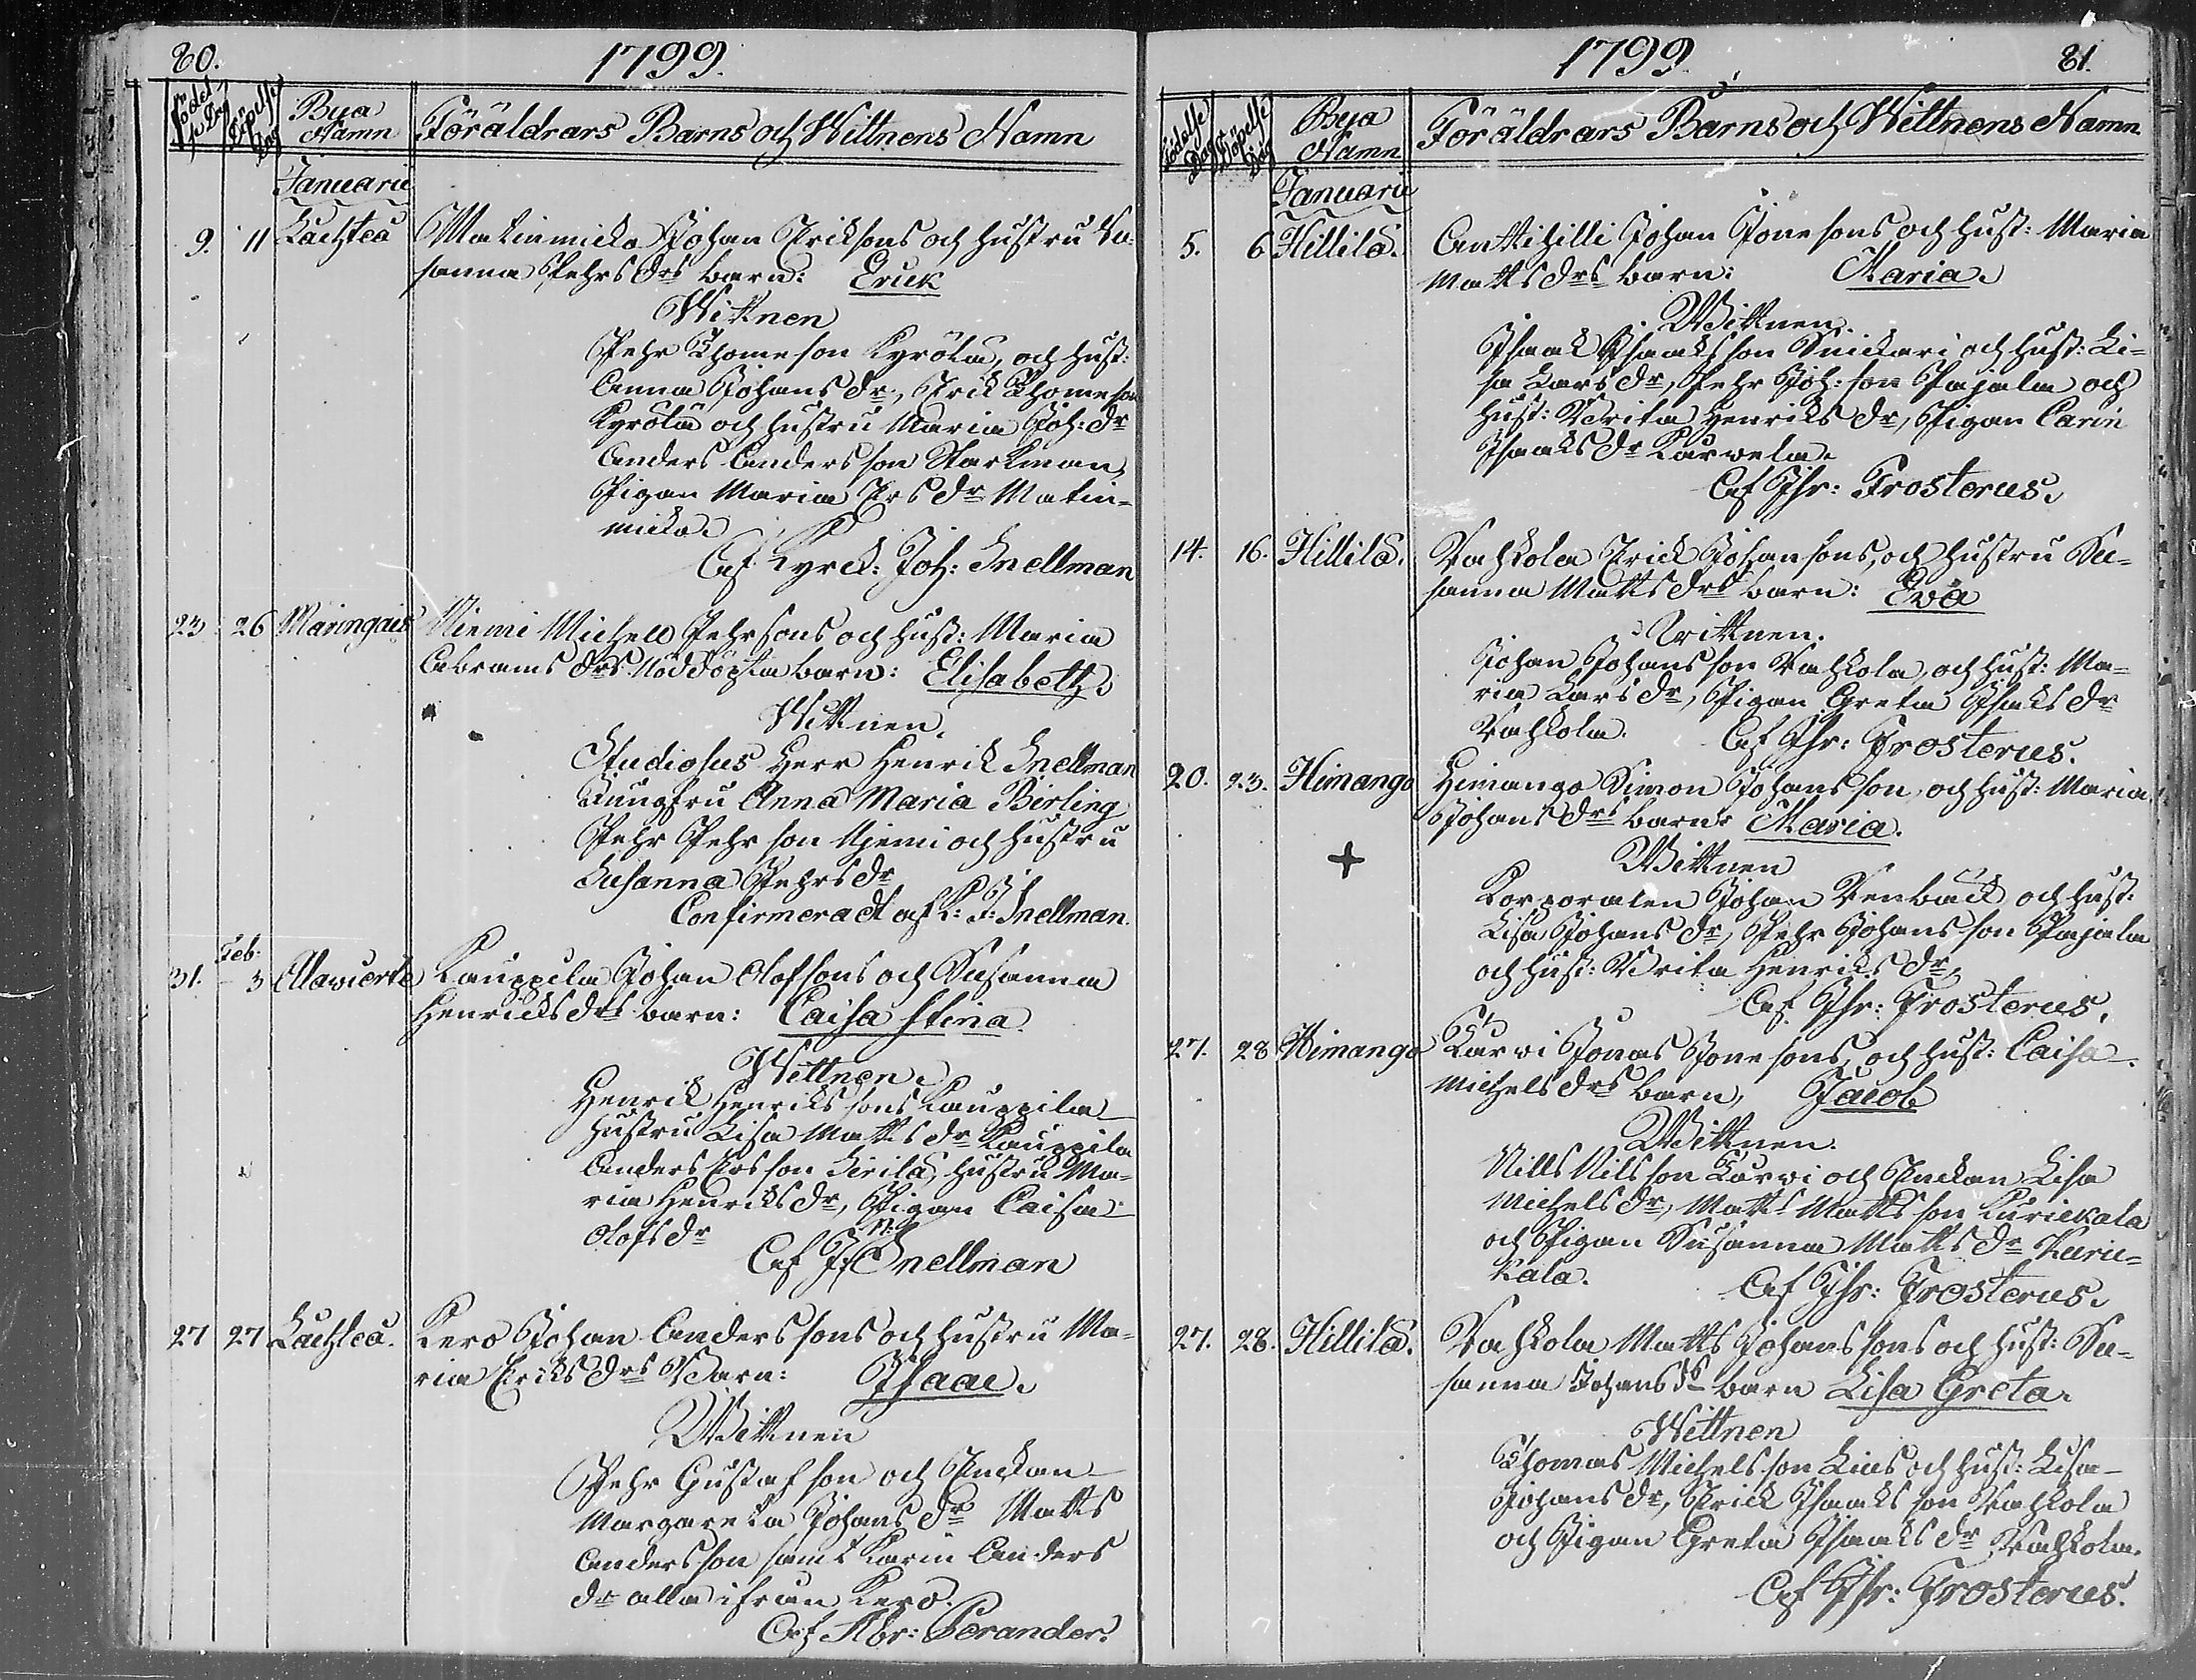 80.
1799.
Födelse Dag
Döpelse Dag
Bya Namn
Föräldrars Barns och Wittnens Namn
Januarii
9. 11 Lachtea Matinmicko Johan Erikssons och hustru Su-
sanna Pehrs drs barn: Erick
Wittnen
Pehr Thomeson Kyrölä, och hust:
Anna Johans dr, Erick Thomeson
Kyrölä och hustru Maria Joh: dr
Anders Andersson Starkman,
Pigan Maria Ers dr Matin-
micko.
Af Kyrck: Joh: Snellman
23 26 Maringais Niemi Michell Pehrsons och hust: Maria
Abrams drs Nöddöpta barn: Elisabeth.
Wittnen.
Studiosus Herr Henrik Snellman
Jungfru Anna Maria Birling
Pehr Pehrson Niemi och hustru
Susanna Pehrs dr
Confirmeradt af K: J: Snellman.
Feb.
31. 3 Alawierte Kauppila Johan Olofsons och Susanna
Henricks drs barn: Caisa Stina.
Wittnen.
Henrik Henriks sons Kauppila
hustru Lisa Matts dr Kauppila
Anders Ersson Sirilä, hustru Ma-
ria Henriks dr, Pigan Caisa
Olofs dr
Af J: Snellman
27 27 Lachtea. Kero Johan Anderssons och hustru Ma-
ria Ericks drs Barn: Isaac.
Wittnen
Pehr Gustafson och Enckan
Margareta Johans dr Matts
Andersson samt Karin Anders
dr alla ifrån Kero.
Af Abr: Perander.
1799.
81.
Födelse Dag
Döpelse Dag
Bya Namn
Föräldrars Barns och Wittnens Namn
Januarii
5. 6 Hillilä. Anttihilli Johan Jönesons och hust: Maria
Matts drs barn: Maria.
Wittnen.
Isaak Isaaksson Snickari och hust: Li-
sa Lars dr, Pehr Joh:son Pajala och
hust: Brita Henriks dr, Pigan Carin
Isaaks dr Karwela.
Af Ihr: Frosterus.
14. 16. Hillilä. Tachkola Erick Johansons, och hustru Su-
sanna Matts drs barn: Eva
Wittnen.
Johan Johansson Tachkola, och hust: Ma-
ria Lars dr, Pigan Greta Isaks dr
Tachkola.
Af Ihr: Frosterus.
20. 23. Himango Himango Simon Johansson, och hust: Maria
Johans drs barn: Maria.
Wittnen
Korporalen Johan Renback och hust:
Lisa Johans dr, Pehr Johansson Pajala
och hust: Brita Henriks dr,
Af Ihr: Frosterus.
27. 28 Himango Karwi Jonas Jonesons, och hust: Caisa
Michels drs barn, Jacob
Wittnen.
Nills Nilsson Karwi och Enckan Lisa
Michels dr, Matts Mattsson Kuriekala
och Pigan Susanna Matts dr Kurie-
kala.
Af Ihr: Frosterus.
27. 28. Hillilä. Tachkola Matts Johanssons och hust: Su-
sanna Johans dr barn Lisa Greta.
Wittnen
Thomas Michelsson Lius och hust: Lisa
Johans dr, Erick Isaaksson Tachkola
och Pigan Greta Isaaks dr Tachkola.
Af Ihr: Frosterus.